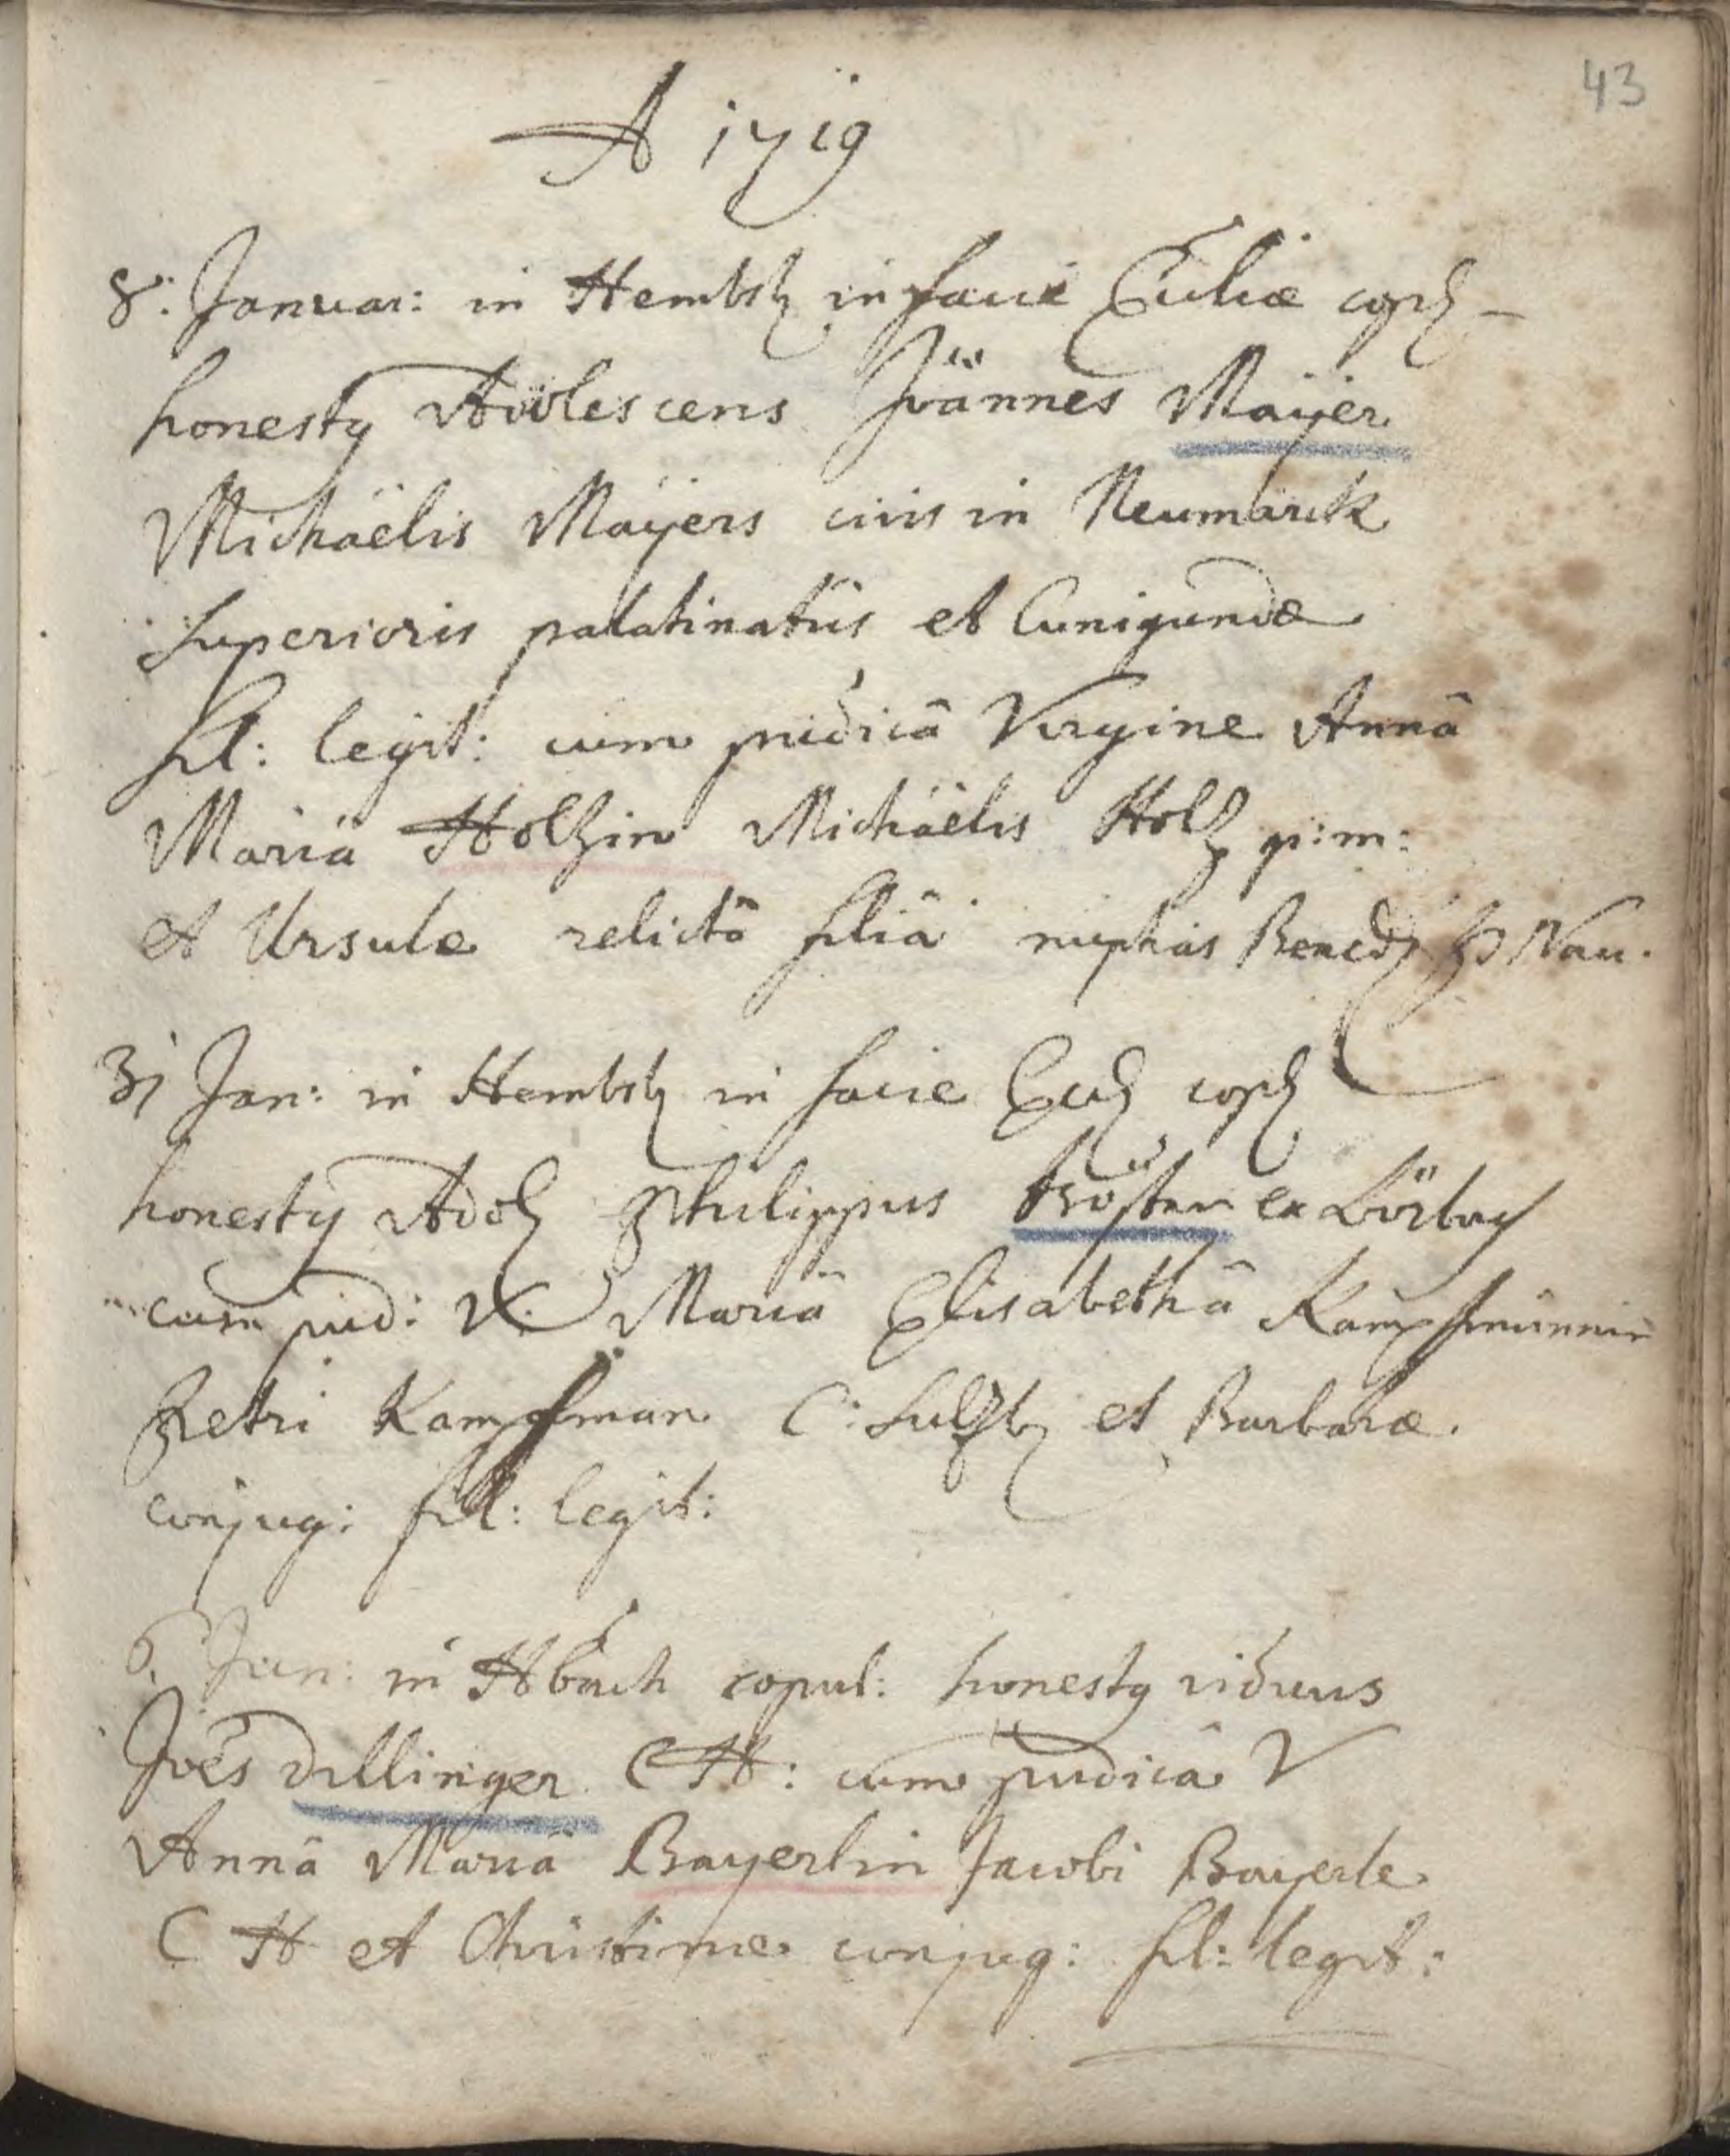 43
A 1719
8: Januar: in Hembsb in facie Eccliæ cop
honesty Adolescens Joännes Maÿer
Michäelis Maÿers civis in Neumarck
superioris palatinatûs et Cunigundæ
fil: legit: cum pudicâ Virgine Annâ
Mariâ Holzin Michäelis Holz p: m:
et Ursulæ relictâ filiâ nuptias Bened: Nau.
31 Jan: in Hembsb in facie Eccl copl
honesty Adol Philippus ex Lörbach
cum pud: V. Mariâ Elisabethâ Kampfmännin
Petri Kampfman C: Sulzb et Barbaræ
conjug: fil: legit:
6. Jan: in Hbach copul: honesty viduus
Joẽs Dillinger C H: cum pudicâ V
Annâ Mariâ Bayerlin Jacobi Bayerle
C H et Christinæ conjug: fil: legit: